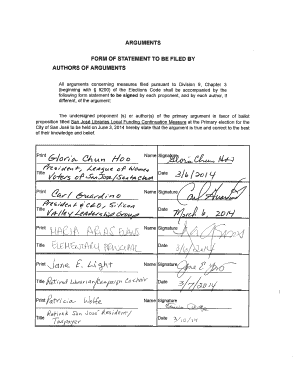 ARGUMENTS
FORM OF STATEMENT TO BE FILED BY
AUTHORS OF ARGUMENTS
All arguments concerning measures filed pursuant to Division 9, Chapter 3
(beginning with § 9200) of the Elections Code shall be accompanied by the
following form statement to be signed by each proponent, and by each author, if
different, of the argument:
The undersigned proponent (s) or author(s) of the primary argument in favor of ballot
proposition titled San José Libraries Local Funding Continuation Measure at the Primary election for the
City of San José to be held on June 3, 2014 hereby state that the argument is true and correct to the best
of their knowledge and belief.
Print Name Signature
Gloria Chun Hoo Gloria Chun Hoo
Title President, League of Women
Voters of San Jose/Santa Clara Date 3/6/2014
Print Name Signature
Carl Guardino Carl Guardino
Title President & CEO, Silicon
Valley Leadership Group Date March 6, 2014
Print Name Signature
MARIA ARIAS EVANS
Title ELEMENTARY PRINCIPAL Date 3/6/2014
Print Name Signature
Jane E. Light Jane E. Light
Title Retired Librarian/Campaign Cochair Date 3/7/2014
Print Name Signature
Patricia Waite
Title Retired San José Resident/
Taxpayer Date 3/10/14